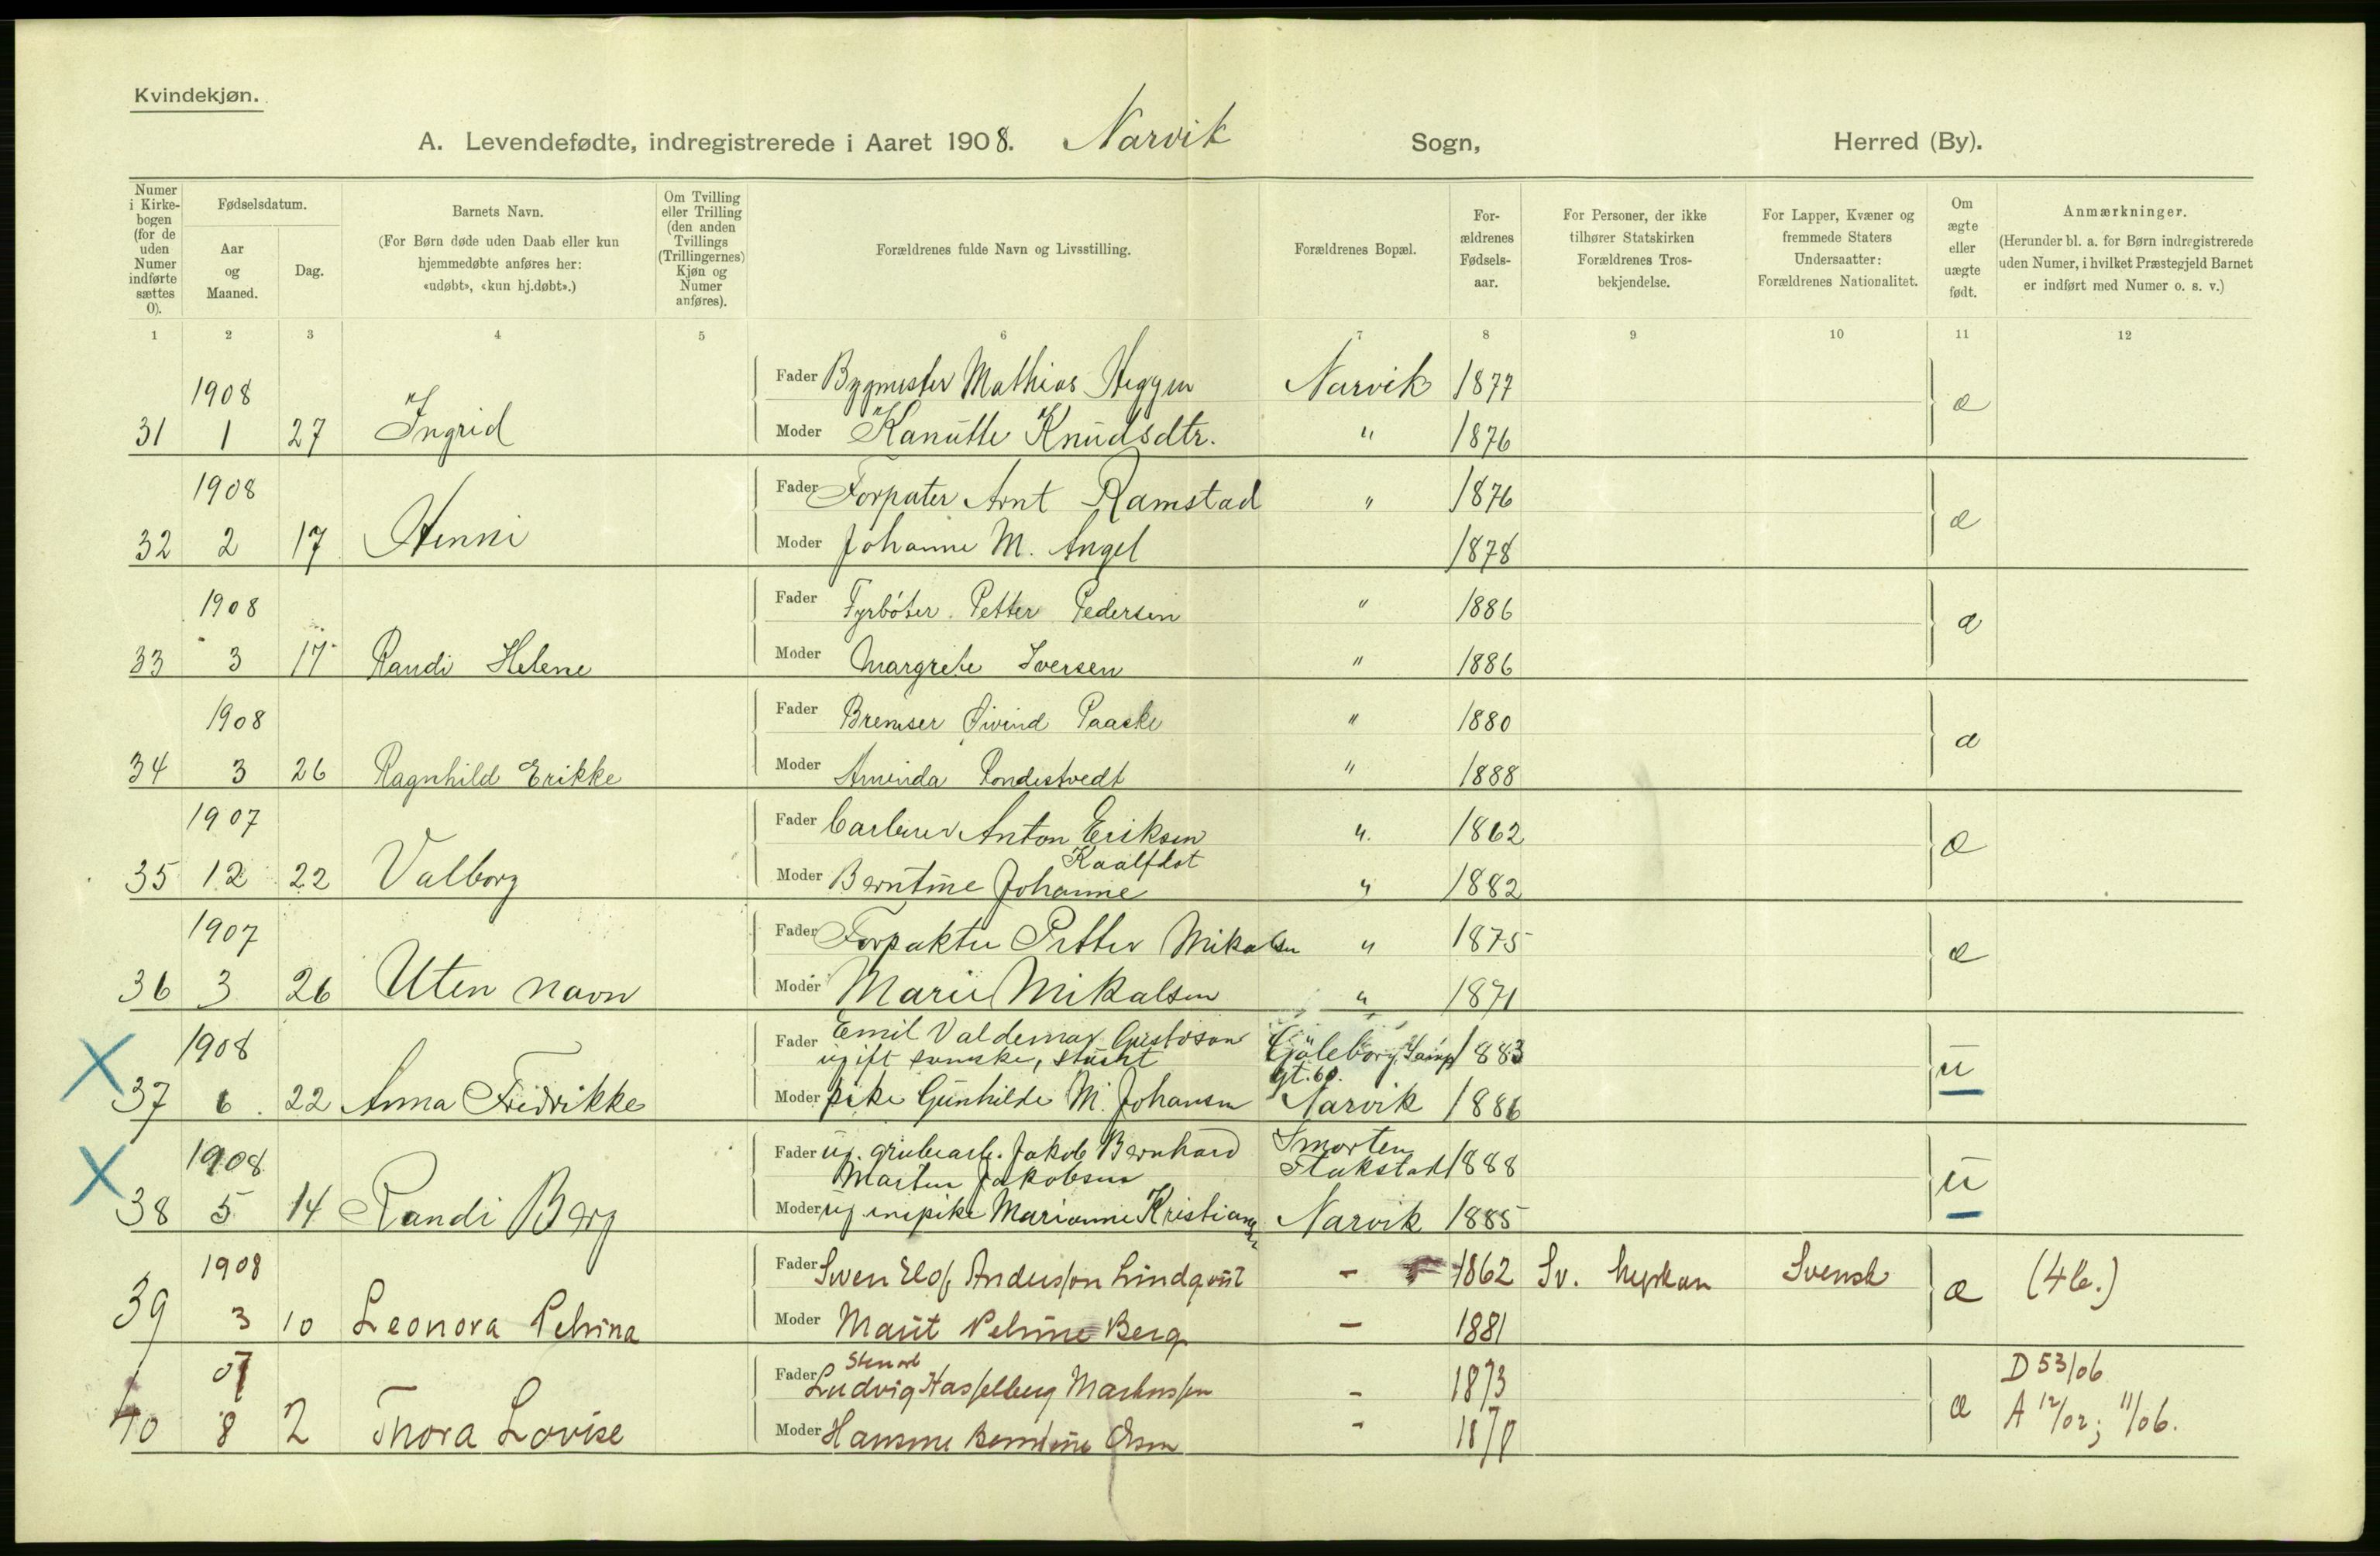 Kvindekjøn.
A. Levendefødte, indregistrerede i Aaret 1908. Narvik Sogn, Herred (By).
Numer i Kirkebogen (for de uden Numer indførte sættes 0).
Fødselsdatum.
Aar og Maaned.
Dag.
Barnets Navn.
(For Børn døde uden Daab eller kun hjemmedøbte anføres her: «udøbt», «kun hj.døbt».)
Om Tvilling eller Trilling (den anden Tvillings (Trillingernes) Kjøn og Numer anføres).
Forældrenes fulde Navn og Livsstilling.
Forældrenes Bopæl.
Forældrenes Fødselsaar.
For Personer, der ikke tilhører Statskirken Forældrenes Trosbekjendelse.
For Lapper, Kvæner og fremmede Staters Undersaatter: Forældrenes Nationalitet.
Om ægte eller uægte født.
Anmærkninger.
(Herunder bl. a. for Børn indregistrerede uden Numer, i hvilket Præstegjeld Barnet er indført med Numer o. s. v.)
1 2 3 4 5 6 7 8 9 10 11 12
1908 Fader Bygmester Mathias Heggen Narvik 1877 æ
31 1 27 Ingrid Moder Kanutte Knudsdtr. " 1876
1908 Fader Forpater Arnt Ramstad " 1876 æ
32 2 17 Henni Moder Johanne M. Angel 1878
1908 Fader Fyrböter Petter Pedersen " 1886 æ
33 3 17 Randi Helene Moder Margrete Iversen " 1886
1908 Fader Bremser Øivind Paaske " 1880 æ
34 3 26 Ragnhild Erikke Moder Aminda Rondestvedt " 1888
1907 Fader Anton Eriksen " 1862 æ
Kaalfdot
35 12 22 Valborg Moder Berntine Johanne " 1882
1907 Fader Forpakter Petter Mikalsen " 1875 æ
36 3 26 Uten navn Moder Marie Mikalsen " 1871
X 1908 Fader Emil Valdemar Gustvson
ugift svenske, 1883 u
gt. 60.
37 6 22 Anna Fredrikke Moder pike Gunhilde M. Johansen Narvik 1886
X 1908 Fader ug. grubearb. Jakob Bernhard Smorten
Martin Jakobsen Flakstad 1888 u
38 5 14 Randi Berg Moder ug pike Marianne Kristiansen Narvik 1885
1908 Fader Sven Elof Andersson Lindqvist - 1862 Sv. Svensk æ (4b.)
39 3 10 Leonora Petrina Moder Marit Petrine Berg - 1881
07 Fader Ludvig Hasselberg Markussen - 1873 D 53/06
40 8 2 Thora Lovise Moder Hansine Berntine Olsen - æ A 12/02; 11/06.